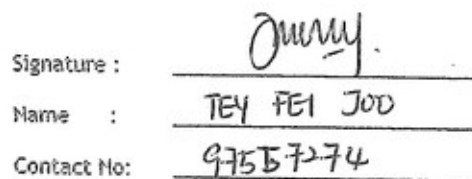 Signature :
Name : TEY FEI JOO
Contact No: 97557274